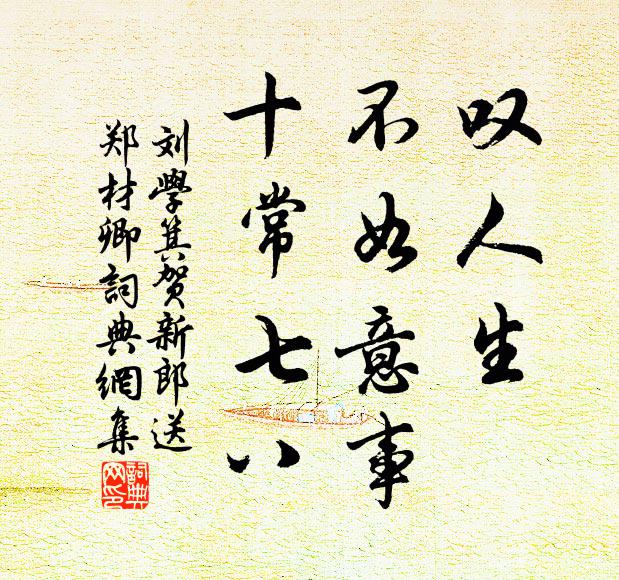 叹人生
不如意事
十常七八
刘学箕贺新郎送
郑材卿词典網集
詞典网印